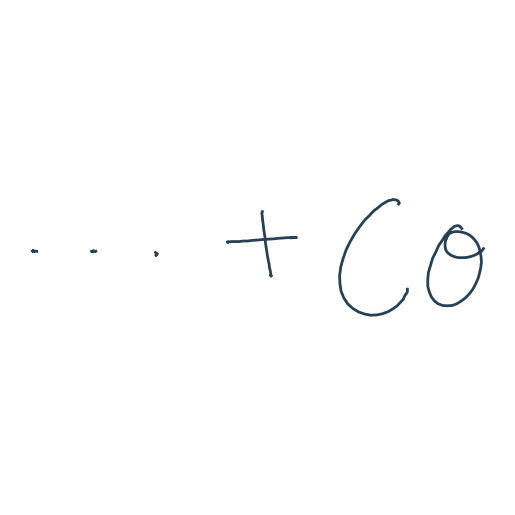 ... + Co